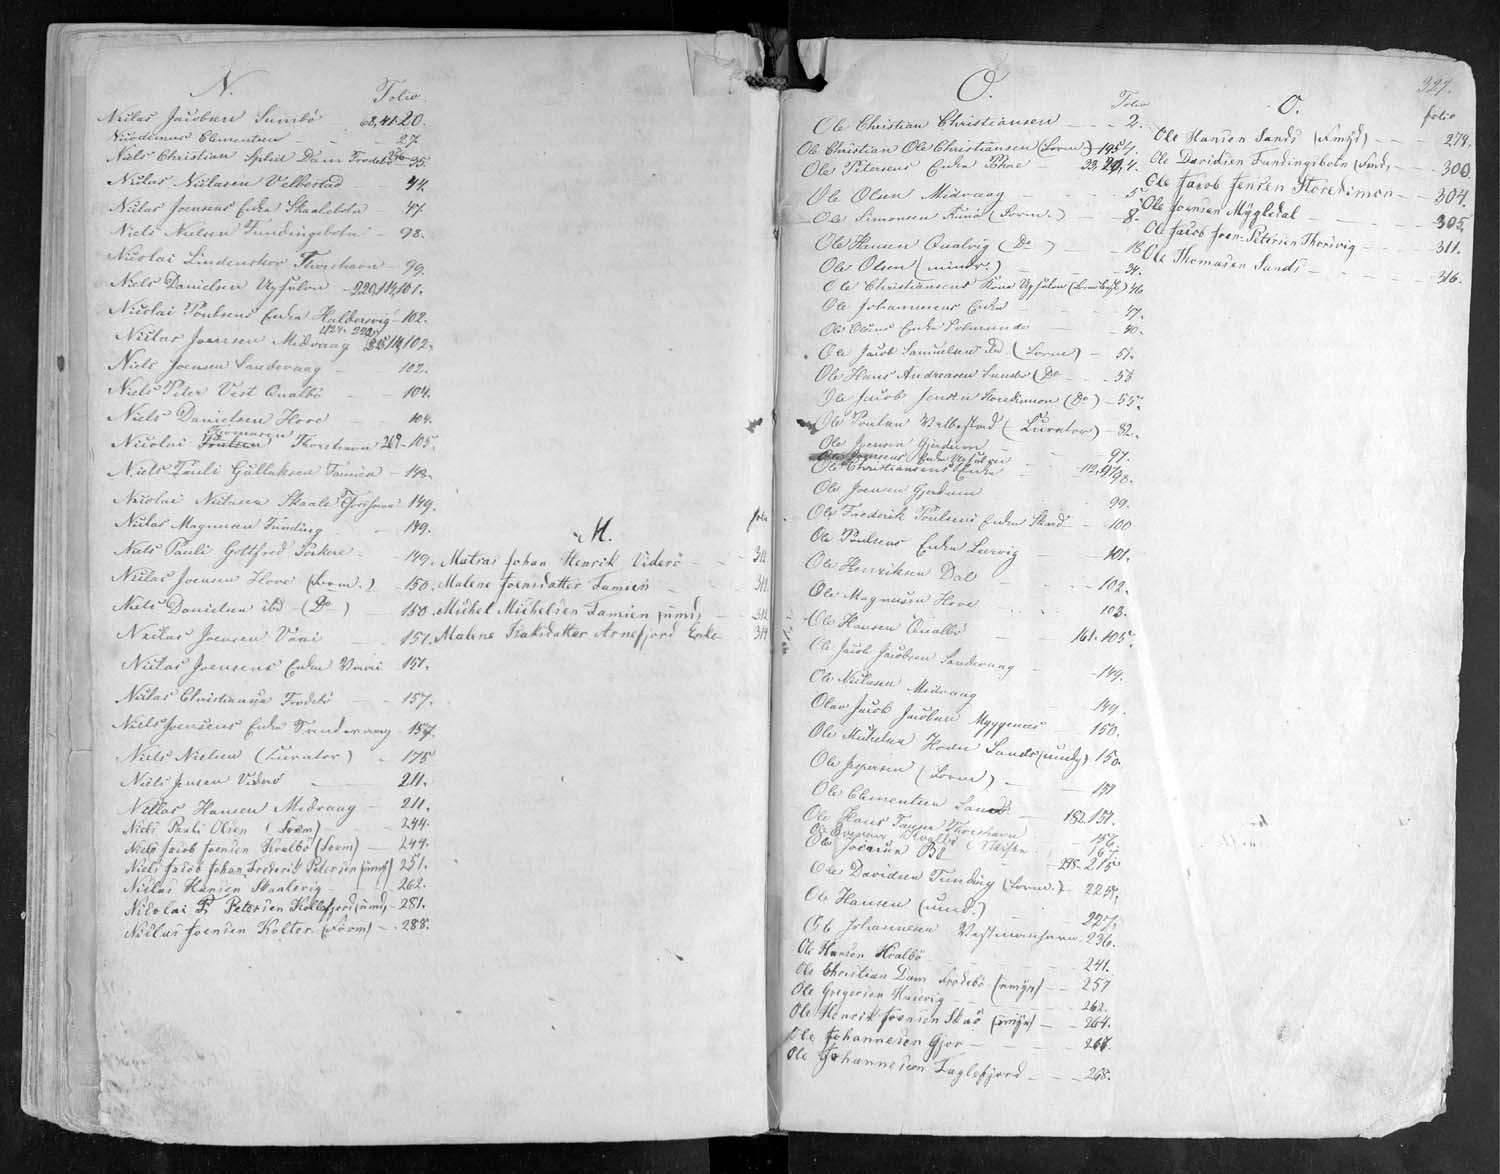 N.
Folio.
Niclas Jacobsen Sumbö 68, 41. 20.
Nicodemus Clementsen 27.
Niels Christian Splid Dam Frodebö 35
Niclas Niclasen Velbestad 44.
Niclas Joensens Enke Skaalebotn 47.
Niels Nielsen Fundingsbotn 98.
Nicolai Lindenskov Thorshavn 99.
Niels Danielsen 220, 114, 101.
Nicolai Poulsens Enke Haldersvig 102.
Niclas Joensen Midvaag 102.
Niels Joensen Sandevaag 102.
Niels Peter Vest Qualbö 104.
Niels Danielsen Hove 104.
Thomasen
Nicolai Poulsen Thorshavn 269-105.
Niels Pauli Gullaksen Famien 148.
Nicolai Niclasen Skaale Thorshavn 149.
Niclas Magnusen Funding 149.
Niels Pauli Gottfred Porkere 149.
Niclas Joensen Hove (Form.) 150.
Niels Danielsen ibd (Do) 150.
Niclas Joensen 151.
Niclas Joensens Enke 151.
Niclas Christiansen Frodebö 157.
Niels Joensens Enke Sandevaag 157.
Niels Nielsen (Curator) 175
Niels Jensen Viderö 211.
Niclas Hansen Midvaag 211.
Niels Pauli Olsen (Form) 244.
Niels Jacob Joensen Kvalbö (Form) 244.
Niels Jacob Johan Frederik Petersen (umd) 251.
Niclas Hansen Skaalevig 262.
Nicolai F. Petersen Kollefjord (umd) 281.
Niclas Joensen Kolter (Form) 288.
M.
folio
Matras Johan Henrik Viderö 311
Malene Joensdatter Famien 312
Michel Michelsen Famien (umd) 312
Malene Isaksdatter Arnefjord Enke 314
327.
O.
Folio
Ole Christian Christiansen 2.
Ole Christian Ole Christiansen (Form.) 195, 4.
Ole Petersens Enke 33, 29, 4.
Ole Olsen Midvaag 5
Ole Simonsen Kunö (Form.) 8.
Ole Hansen Qualvig (Do) 18
Ole Olsen (mindr.) 34.
Ole Christiansens Kone 46
Ole Johannesens Enke 47.
Ole Olsens Enke 40.
Ole Jacob Samuelsen (Form) 51.
Ole Hans Andreasen Sands (Do 53
Ole Jacob Jensen Storedimon (Do) 55.
Ole Poulsen Velbestad (Curator) 82.
Ole Joensen Gjerdum 97.
Ole Christiansens Enke 112, 98.
Ole Joensen Gjerdum 99.
Ole Frederik Poulsens Enke 100
Ole Poulsens Enke Leervig 101.
Ole Henriksen Dal 102.
Ole Magnusen Hove 103.
Ole Hansen Qualbö 161. 105.
Ole Jacob Jacobsen Sandevaag 149.
Ole Niclasen Midvaag 149.
Ole Jacob Jacobsen Myggenæs 150.
Ole Michelsen Sands (umdg) 150.
Ole Jespersen (Form) 151
Ole Clementsen Sand 182. 157.
Ole Hans Thorshavn 156.
Ole Joensen 215
Ole Davidsen Funding (Form.) 225.
Ole Hansen (umd.) 227.
Ole Johannesen Vestmanhavn 236.
Ole Hansen Kvalbö 241.
Ole Christian Dam Frodebö (umyn) 257
Ole Gregersen Husevig 262.
Ole Henrik Joensen Skaö (umyn) 264.
Ole Johannesen Gjov 267.
Ole Johannesen Fuglefjord 268.
O.
folio
Ole Hansen Sands (Umyd) 279.
Ole Davidsen Fundingsbotn (umd) 300
Ole Jacob Jensen Storedimon 304.
Ole Joensen Mygledal 305.
Ole Jacob Joen-Petersen Thorsvig 311.
Ole Thomasen Sands 316.